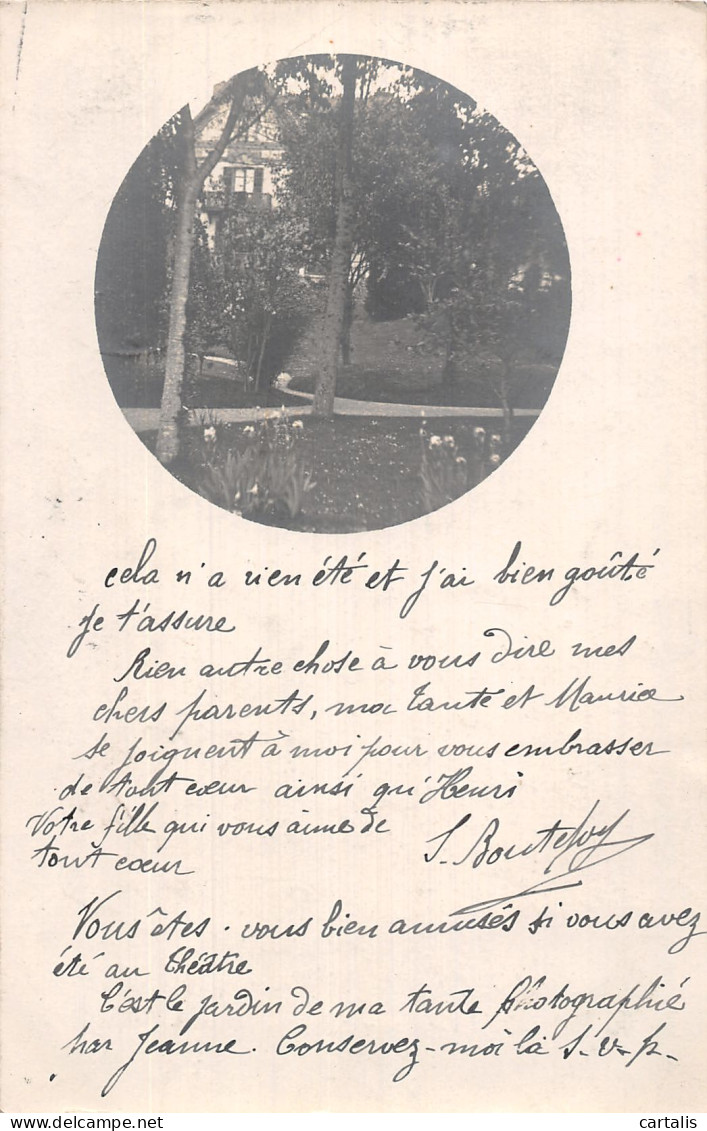 cela n'a rien été et j'ai bien goûté
je t'assure
Rien autre chose à vous dire mes
chers parents, ma tante et Maurice
se joignent à moi pour vous embrasser
de tout cœur ainsi qu'Henri
Votre fille qui vous aime de
tout cœur
S.
Vous êtes-vous bien amusés si vous avez
été au théâtre
C'est le jardin de ma tante photographié
par Jeanne. Conservez-moi la S.v.p.
cartalis
delcampe.net